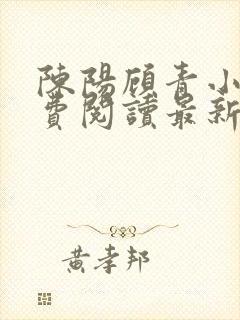 陳陽顧青小
費閱讀最新
黃孝邦